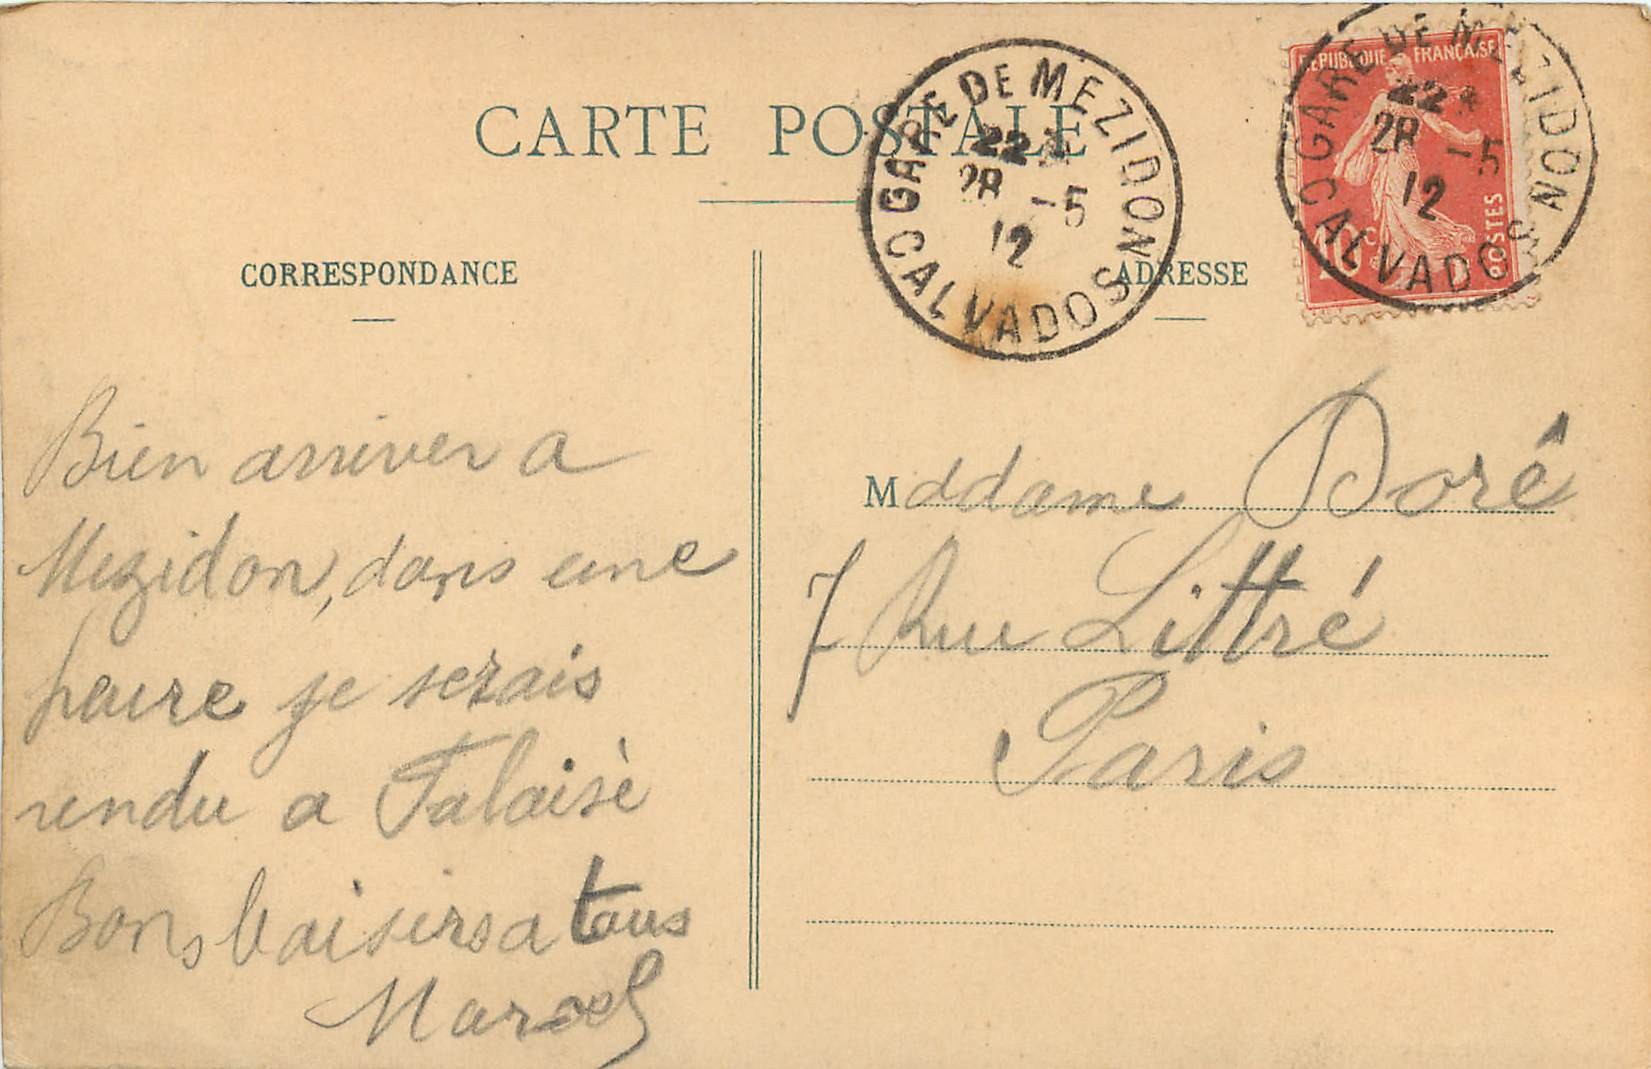 CARTE POSTALE
GARE DE MEZIDON
22
28 -5
12
CALVADOS
REPUBLIQUE FRANÇAISE
10c
POSTES
GARE DE MEZIDON
22
28 -5
12
CALVADOS
CORRESPONDANCE
Bien arriver a
Mezidon, dans une
heure je serais
rendu a Falaisè
Bons baisers a tous
Marcel
ADRESSE
Maddame Doré
7 Rue Littré
Paris